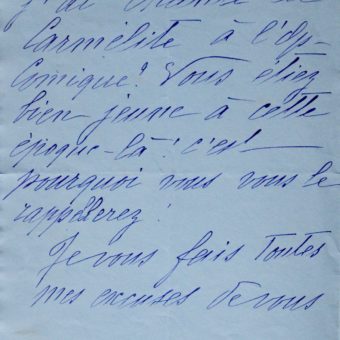 j'ai chanté la
Carmélite à l'Op-
Comique? Vous étiez
bien jeune à cette
époque-là! c'est
pourquoi vous vous le
rappelerez!
Je vous fais toutes
mes excuses de vous